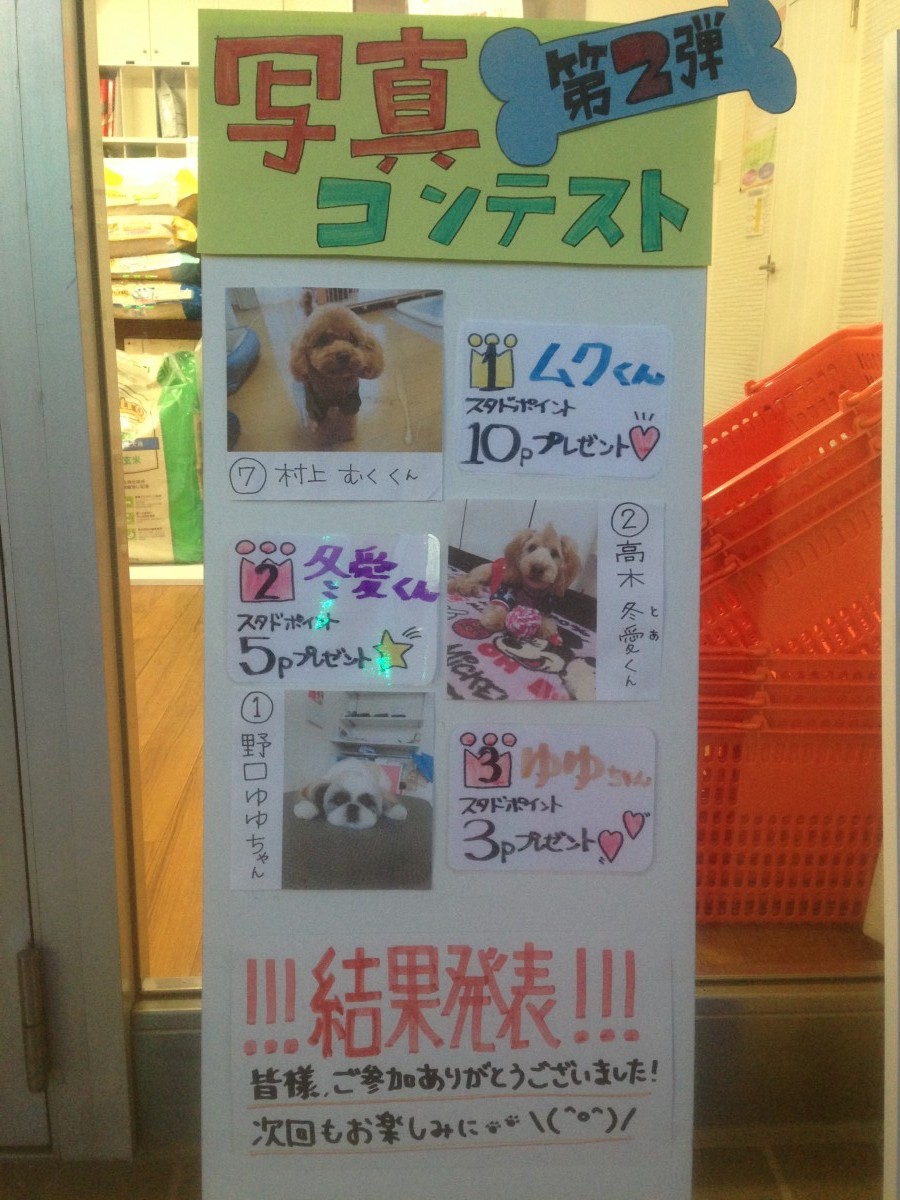 写真
第2弾
コンテスト
⑦ 村上 むくくん
1 ムクくん
スタドポイント
10pプレゼント
2 冬愛くん
スタドポイント
5pプレゼント
② 高木 冬愛くん
とあ
① 野口ゆゆちゃん
3 ゆゆちゃん
スタドポイント
3pプレゼント
!!!結果発表!!!
皆様、ご参加ありがとうございました!
次回もお楽しみに \(^o^)/